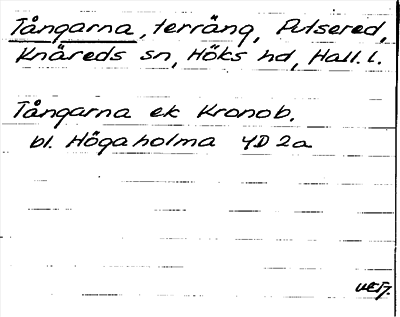 Tångarna, terräng, Putsered,
Knäreds sn, Höks hd, Hall. l.
Tångarna ek Kronob.
bl. Högaholma 4D 2a